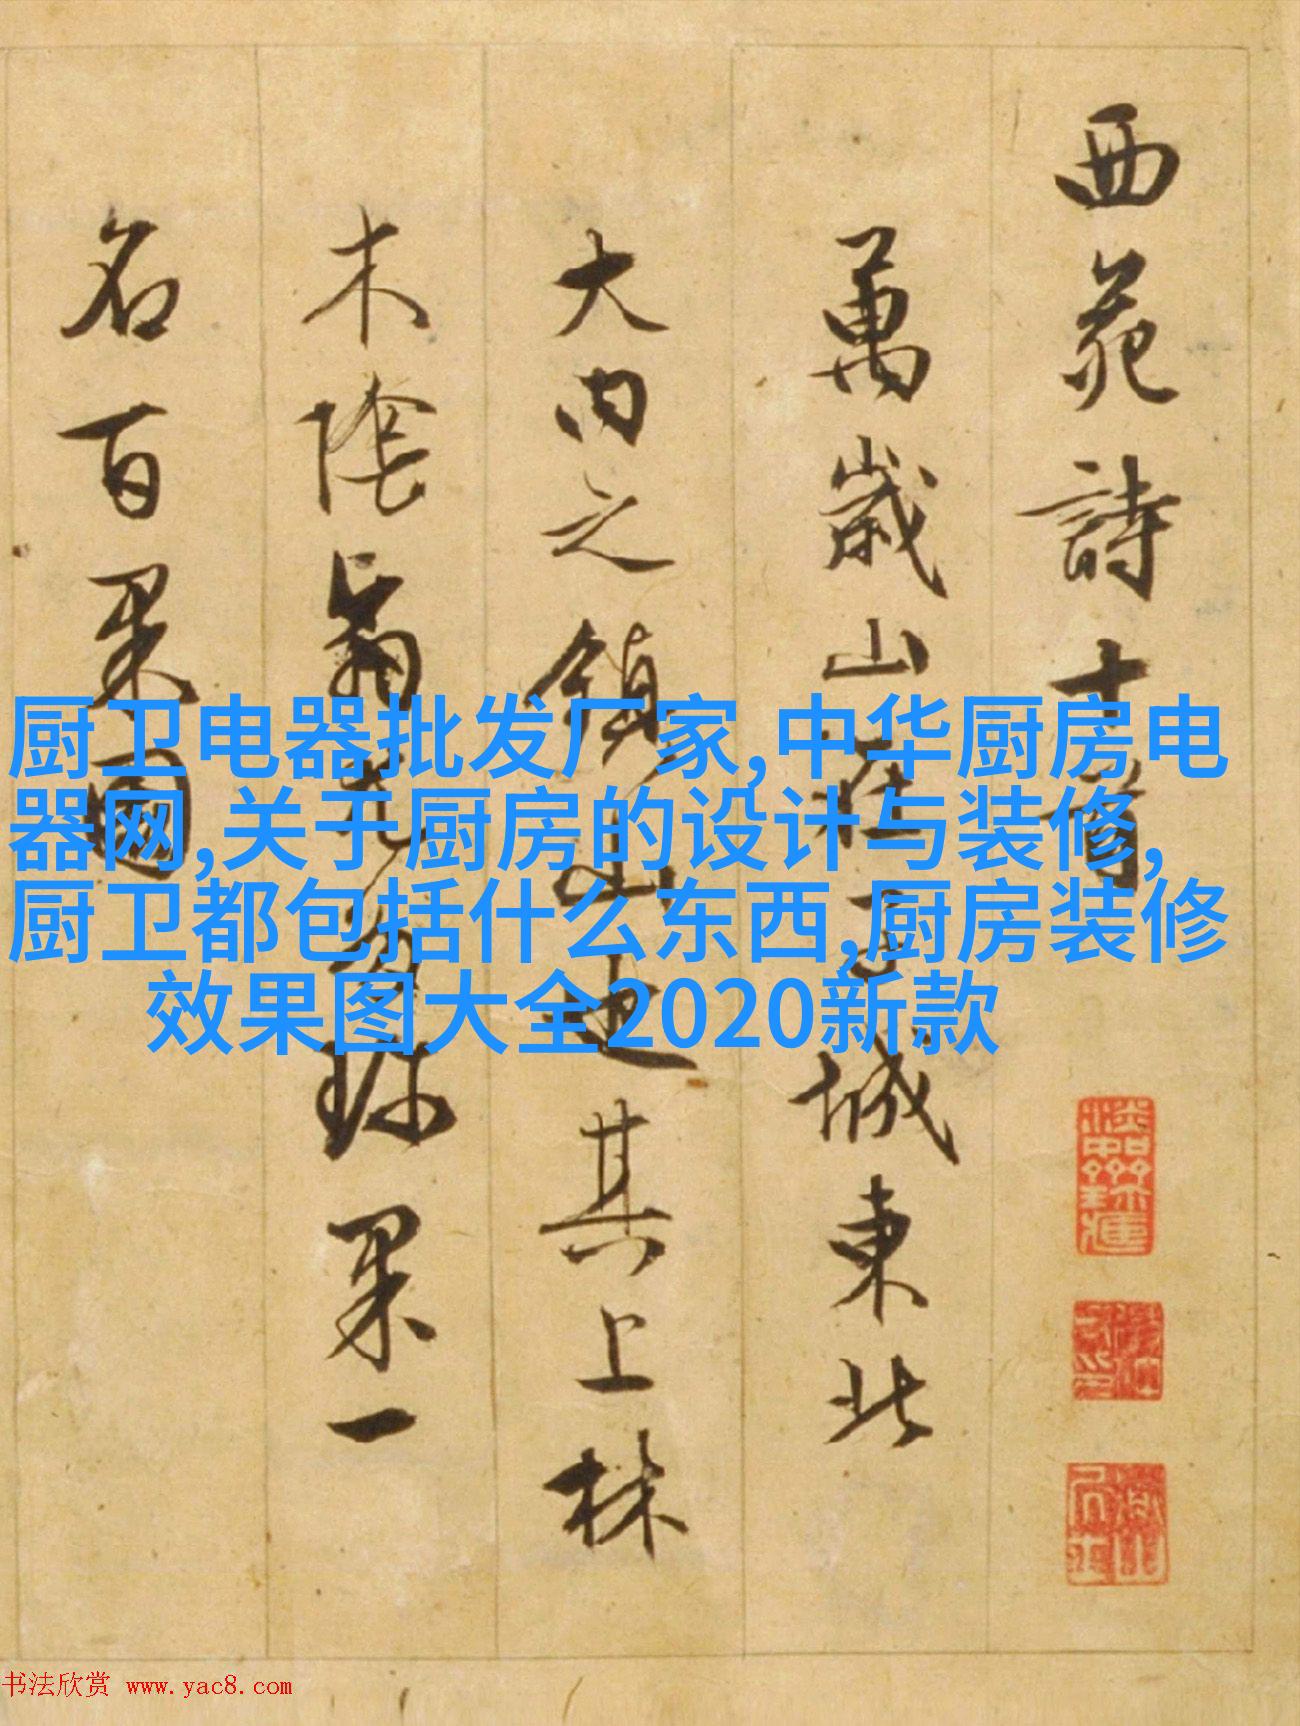 西苑詩十首
萬歲山在子城東北
大内之鎮山也其上林
木陰翳尤多珍果一
名百果園
厨卫电器批发厂家,中华厨房电
器网,关于厨房的设计与装修,
厨卫都包括什么东西,厨房装修
效果图大全2020新款
书法欣赏 www.yac8.com